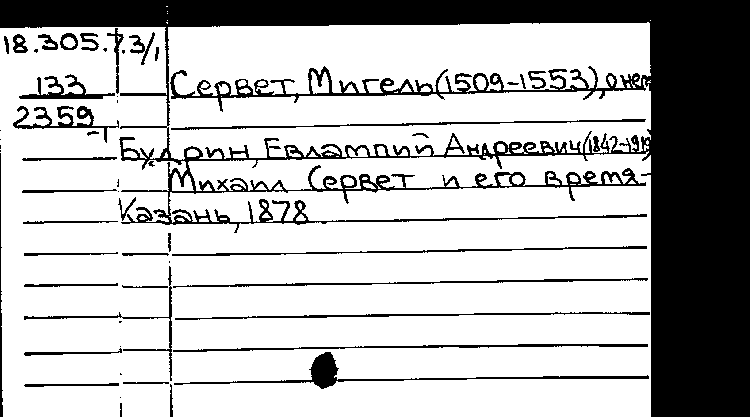 18.305.7.3/1
133
2359-1
Сервет, Мигель (1509-1553), о нем
Будрин, Евлампий Андреевич (1842-1919)
Михаил Сервет и его время-
Казань, 1878